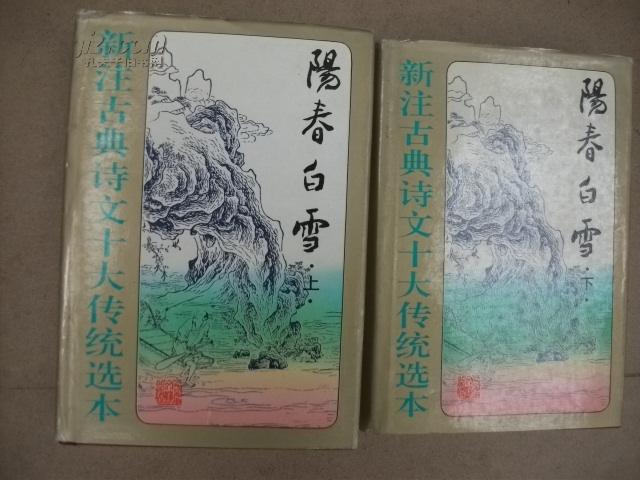 新注古典诗文十大传统选本
陽春白雪
·上·
新注古典诗文十大传统选本
陽春白雪
·下·
孔夫子旧书网